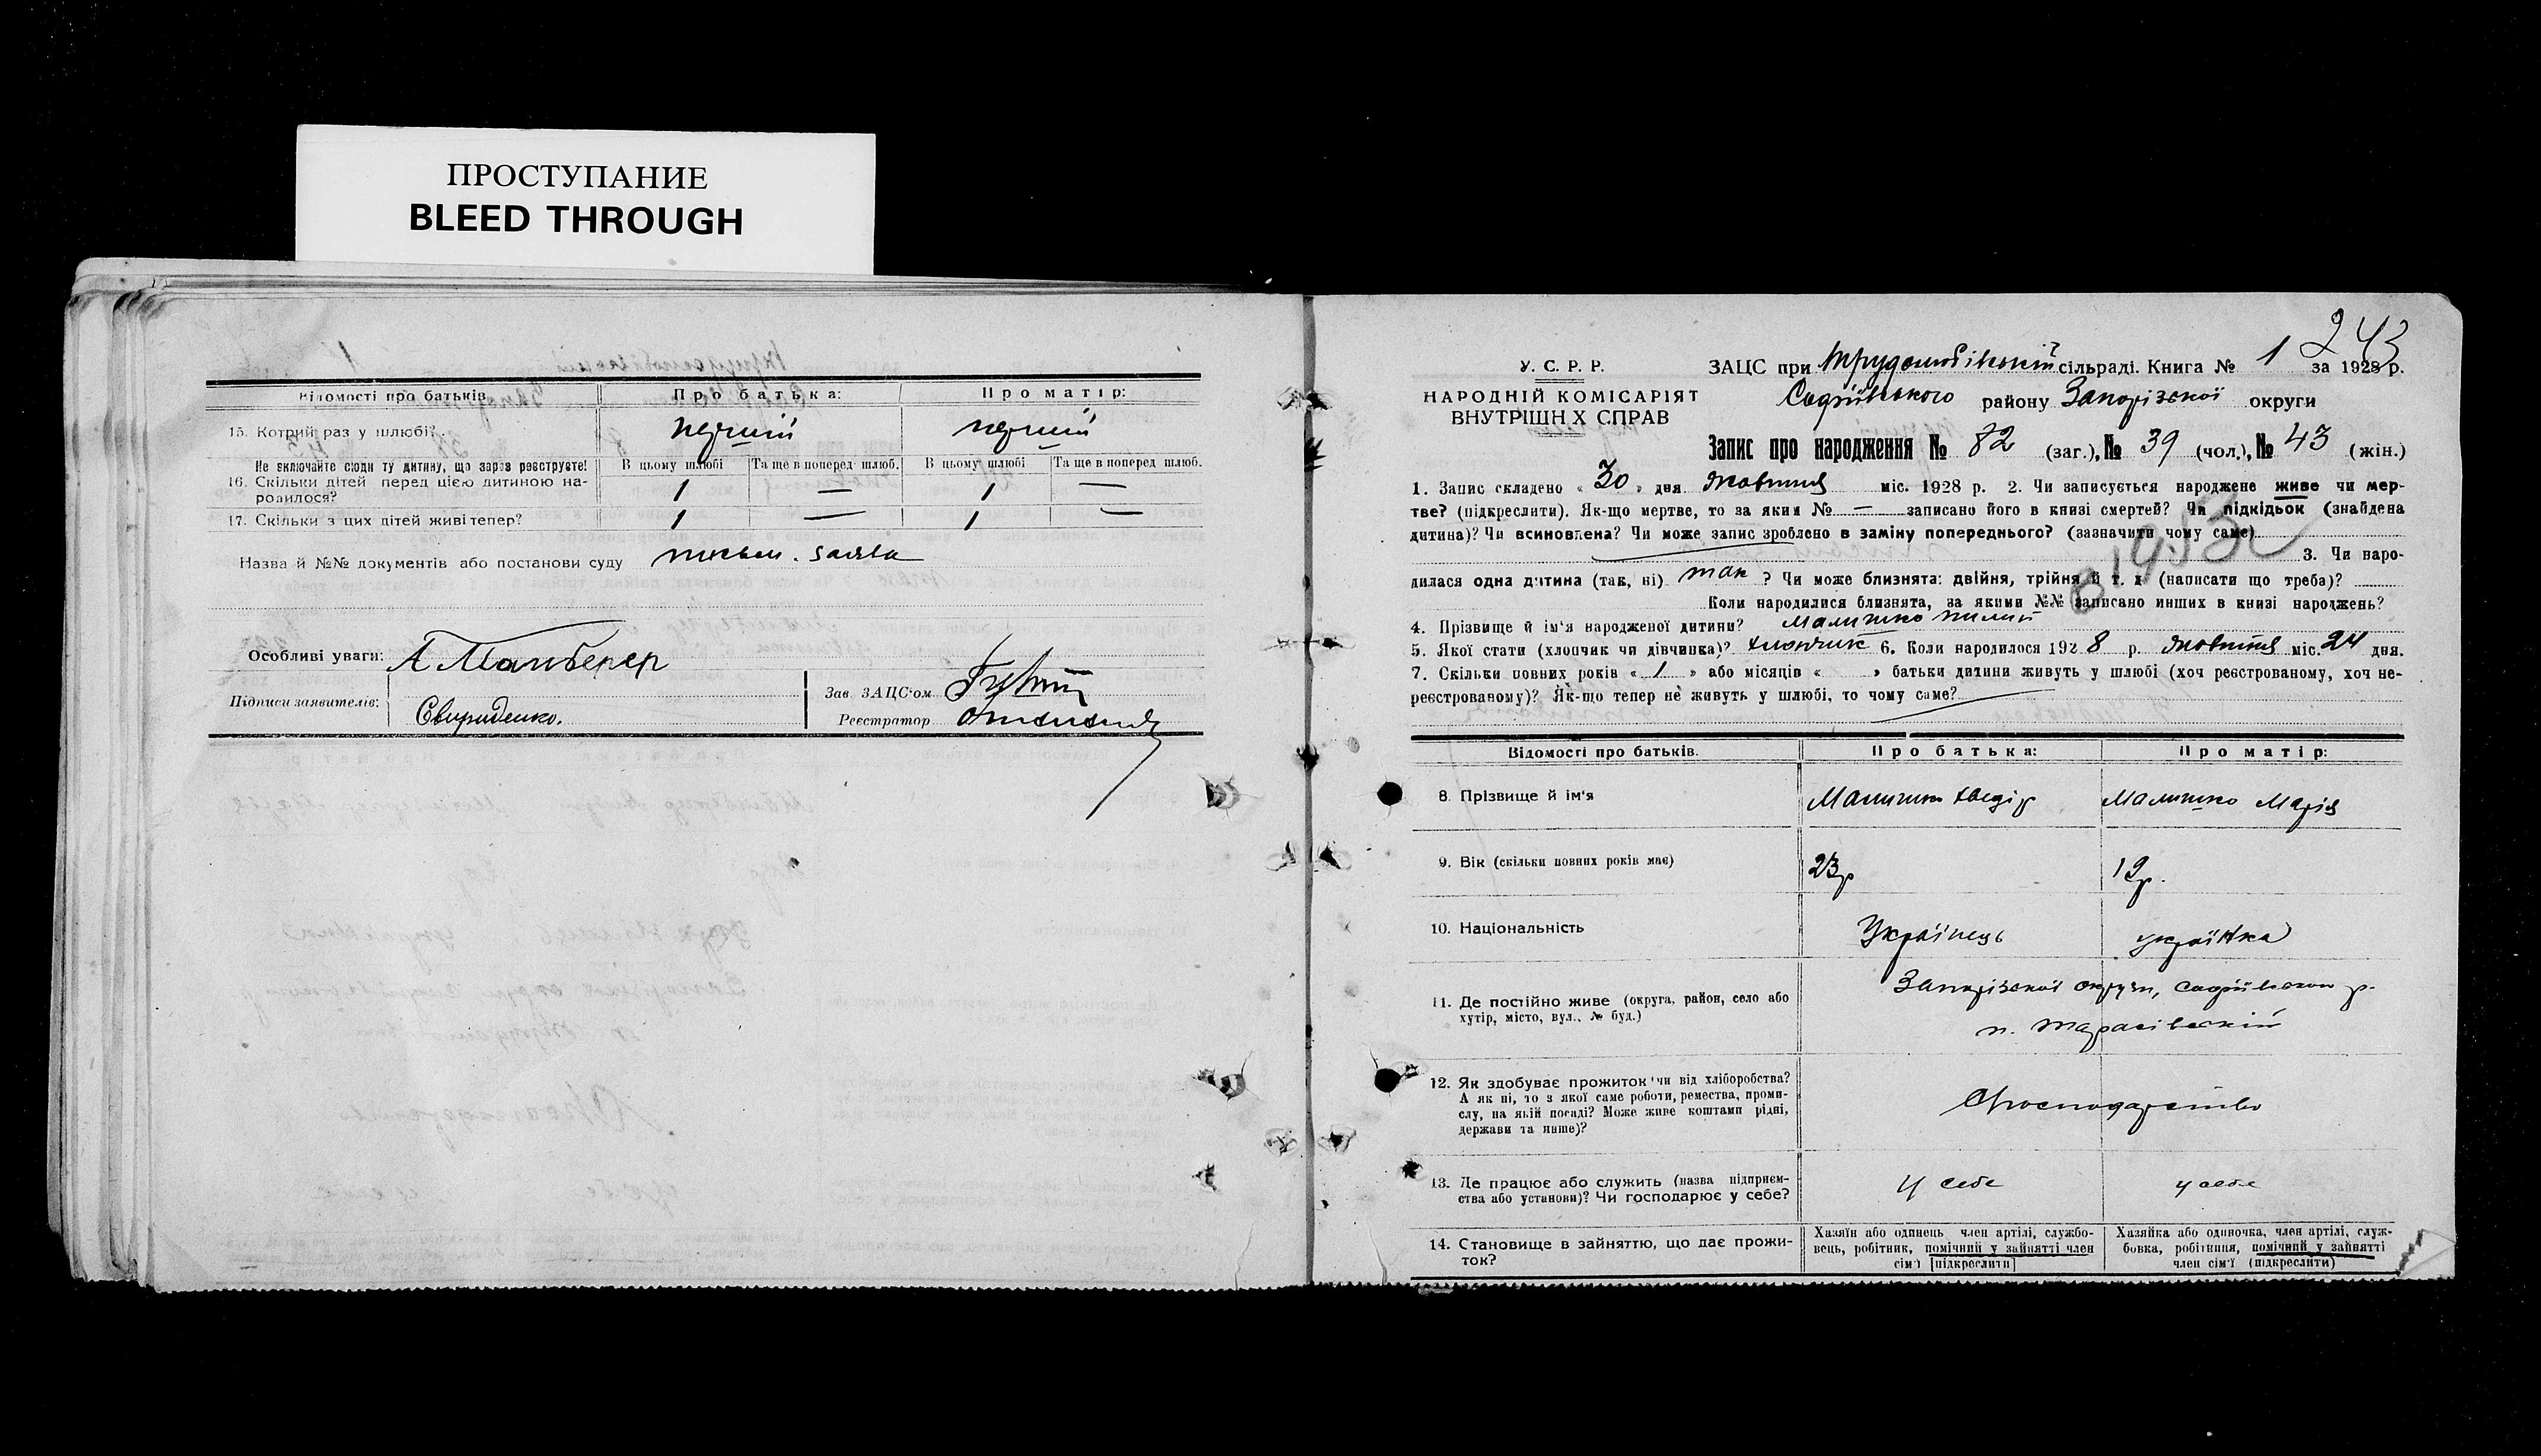 ПРОСТУПАНИЕ
BLEED THROUGH
Відомості про батьків
Про батька:
Про матір:
15. Котрий раз у шлюбі?
перший
перший
Не включайте сюди ту дитину, що зараз реєструєте!
В цьому шлюбі
Та ще в поперед. шлюб.
В цьому шлюбі
Та ще в поперед. шлюб.
16. Скільки дітей перед цією дитиною на-
родилося?
1 — 1 —
17. Скільки з цих дітей живі тепер?
1 — 1 —
Назва й №№ документів або постанови суду письм. заява
Особливі уваги: А Манбергер
Підписи заявителів: Свириденко.
Зав. ЗАЦС'ом
Реєстратор
243
У. С. Р. Р.
НАРОДНІЙ КОМІСАРІЯТ
ВНУТРІШНІХ СПРАВ
ЗАЦС при Трудолюбівській сільраді. Книга № 1 за 1928 р.
Софіївського району Запорізської округи
Запис про народження № 82 (заг.), № 39 (чол.), № 43 (жін.)
1. Запис складено « 30 » дня жовтня міс. 1928 р. 2. Чи записується народжене живе чи мер-
тве? (підкреслити). Як-що мертве, то за яким № — записано його в книзі смертей? Чи підкідьок (знайдена
дитина)? Чи всиновлена? Чи може запис зроблено в заміну попереднього? (зазначити чому саме)
3. Чи наро-
дилася одна дитина (так, ні) так ? Чи може близнята: двійня, трійня й т. д. (написати що треба)?
Коли народилися близнята, за якими №№ записано инших в книзі народжень?
4. Прізвище й ім'я народженої дитини? Малишко
5. Якої стати (хлопчик чи дівчинка)? хлопчик 6. Коли народилося 1928 р. жовтня міс. 24 дня.
7. Скільки повних років « 1 » або місяців « » батьки дитини живуть у шлюбі (хоч реєстрованому, хоч не-
реєстрованому)? Як-що тепер не живуть у шлюбі, то чому саме?
Відомості про батьків.
Про батька:
Про матір:
8. Прізвище й ім'я
Малишко Хведір
Малишко Марія
9. Вік (скільки повних років має)
23р
19р.
10. Національність
Українець
українка
11. Де постійно живе (округа, район, село або
хутір, місто, вул., № буд.)
Запорізської округи, Софіївського р.
п. Тарасівський
12. Як здобуває прожиток чи від хліборобства?
А як ні, то з якої саме роботи, ремества, проми-
слу, на якій посаді? Може живе коштами рідні,
держави та инше)?
Господарство
13. Де працює або служить (назва підприєм-
ства або установи)? Чи господарює у себе?
у себе
у себе
14. Становище в зайняттю, що дає прожи-
ток?
Хазяїн або одинець член артілі, службо-
вець, робітник, помічний у зайнятті член
сім'ї [підкреслити]
Хазяйка або одиночка, член артілі, служ-
бовка, робітниця, помічний у зайнятті
член сім'ї (підкреслити)